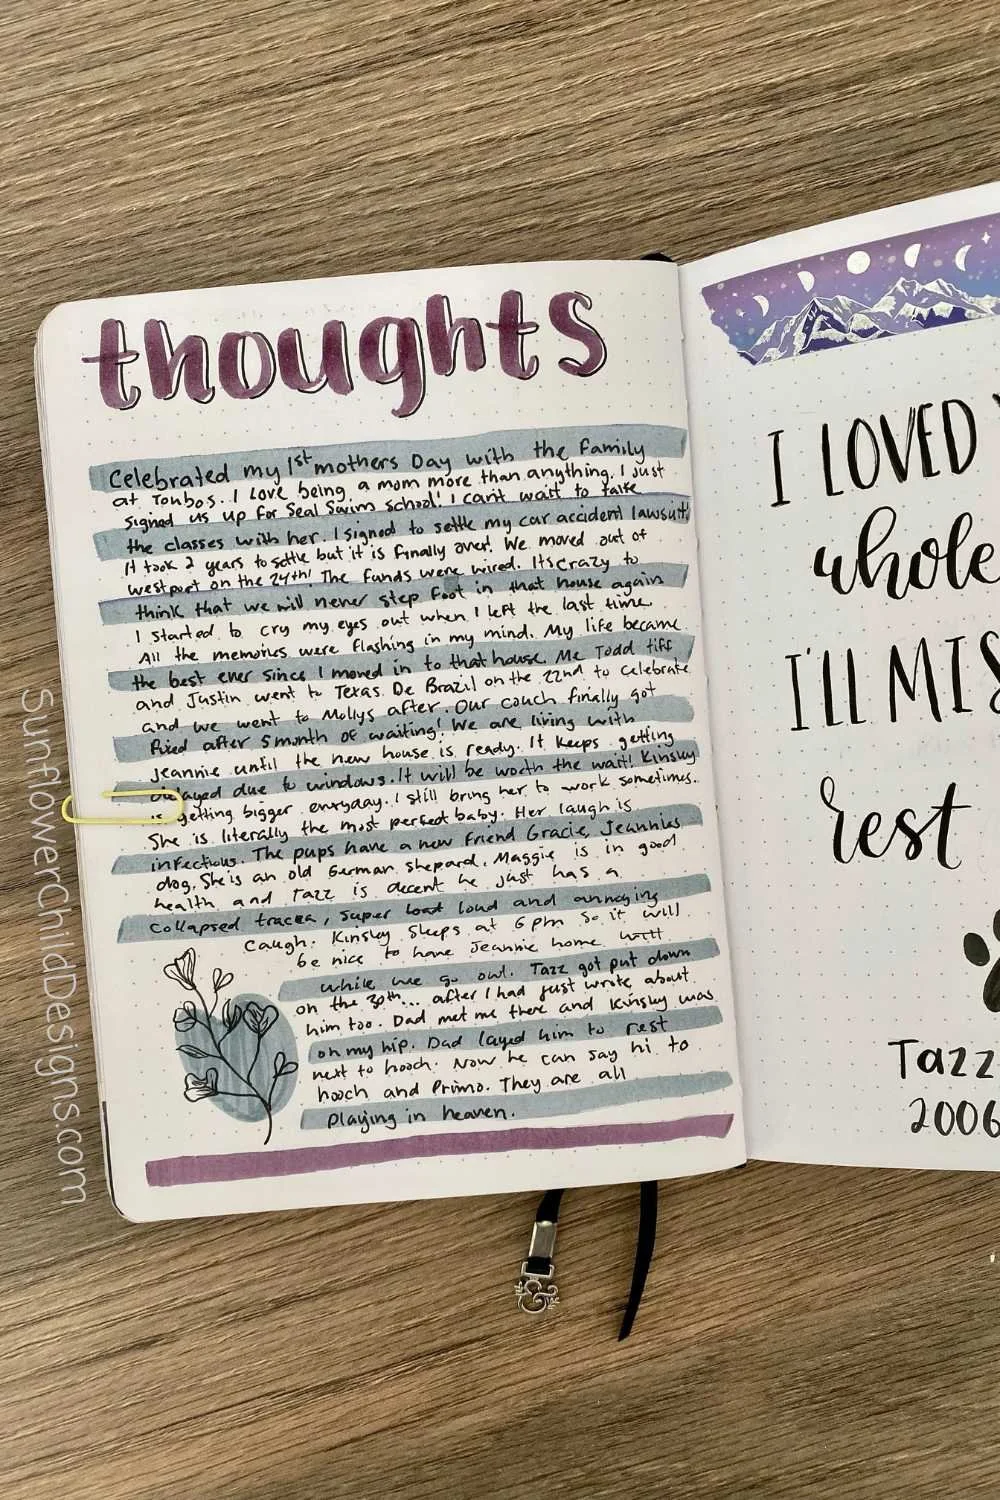 thoughts
Celebrated my 1st mothers Day with the family
at . I love being a mom more than anything. I just
signed us up for Seal Swim School! I can't wait to take
the classes with her. I signed to settle my car accident lawsuit!
It took 2 years to settle but it is finally over! We moved out of
westport on the 24th! The funds were wired. Its crazy to
think that we will never step foot in that house again
I started to cry my eyes out when I left the last time.
All the memories were flashing in my mind. My life became
the best ever since I moved in to that house. Me Todd tiff
and Justin went to Texas De Brazil on the 22nd to celebrate
and we went to Mollys after. Our couch finally got
fixed after 5 month of waiting! We are living with
Jeannie until the new house is ready. It keeps getting
delayed due to windows. It will be worth the wait! Kinsley
is getting bigger everyday. I still bring her to work sometimes.
She is literally the most perfect baby. Her laugh is
infectious. The pups have a new friend Gracie, Jeannies
dog. She is an old German Shepard. Maggie is in good
health and Tazz is decent he just has a
collapsed , super loud and annoying
caugh. Kinsley sleeps at 6pm so it will
be nice to have Jeannie home
while we go out. Tazz got put down
on the 30th... after I had just wrote about
him too. Dad met me there and Kinsley was
on my hip. Dad layed him to rest
next to hooch. Now he can say hi to
hooch and Primo. They are all
playing in heaven.
I LOVED
whole
I'LL MIS
rest
Tazz
2006
SunflowerChildDesigns.com